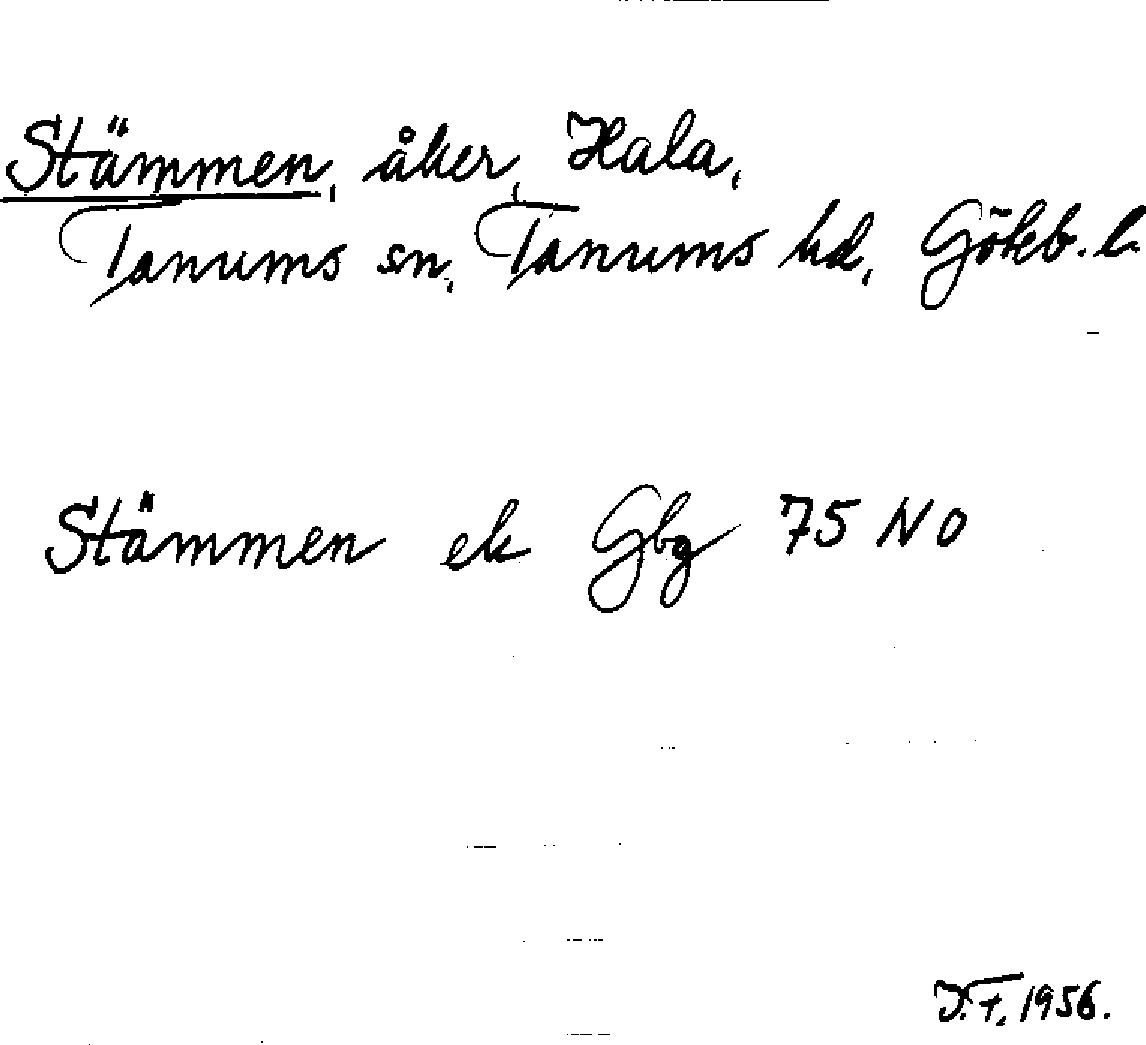 Stämmen, åker, Hala,
Tanums sn, Tanums hd, Göteb. l
Stämmen ek Gbg 75 NO
J.F. 1956.